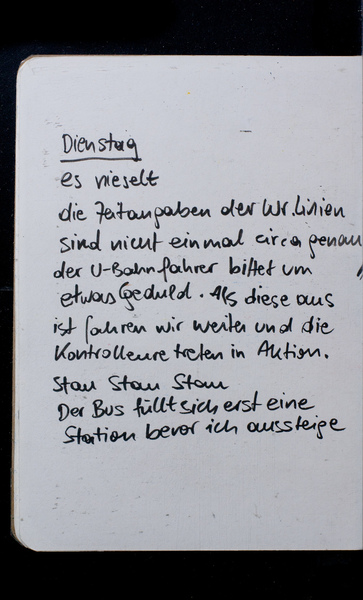 Dienstag
es nieselt
die Zeitangaben der Wr. Linien
sind nicht einmal circa genau
der U-Bahnfahrer bittet um
etwas Geduld. Als diese aus
ist fahren wir weiter und die
Kontrolleure treten in Aktion.
Stau Stau Stau
Der Bus füllt sich erst eine
Station bevor ich aussteige